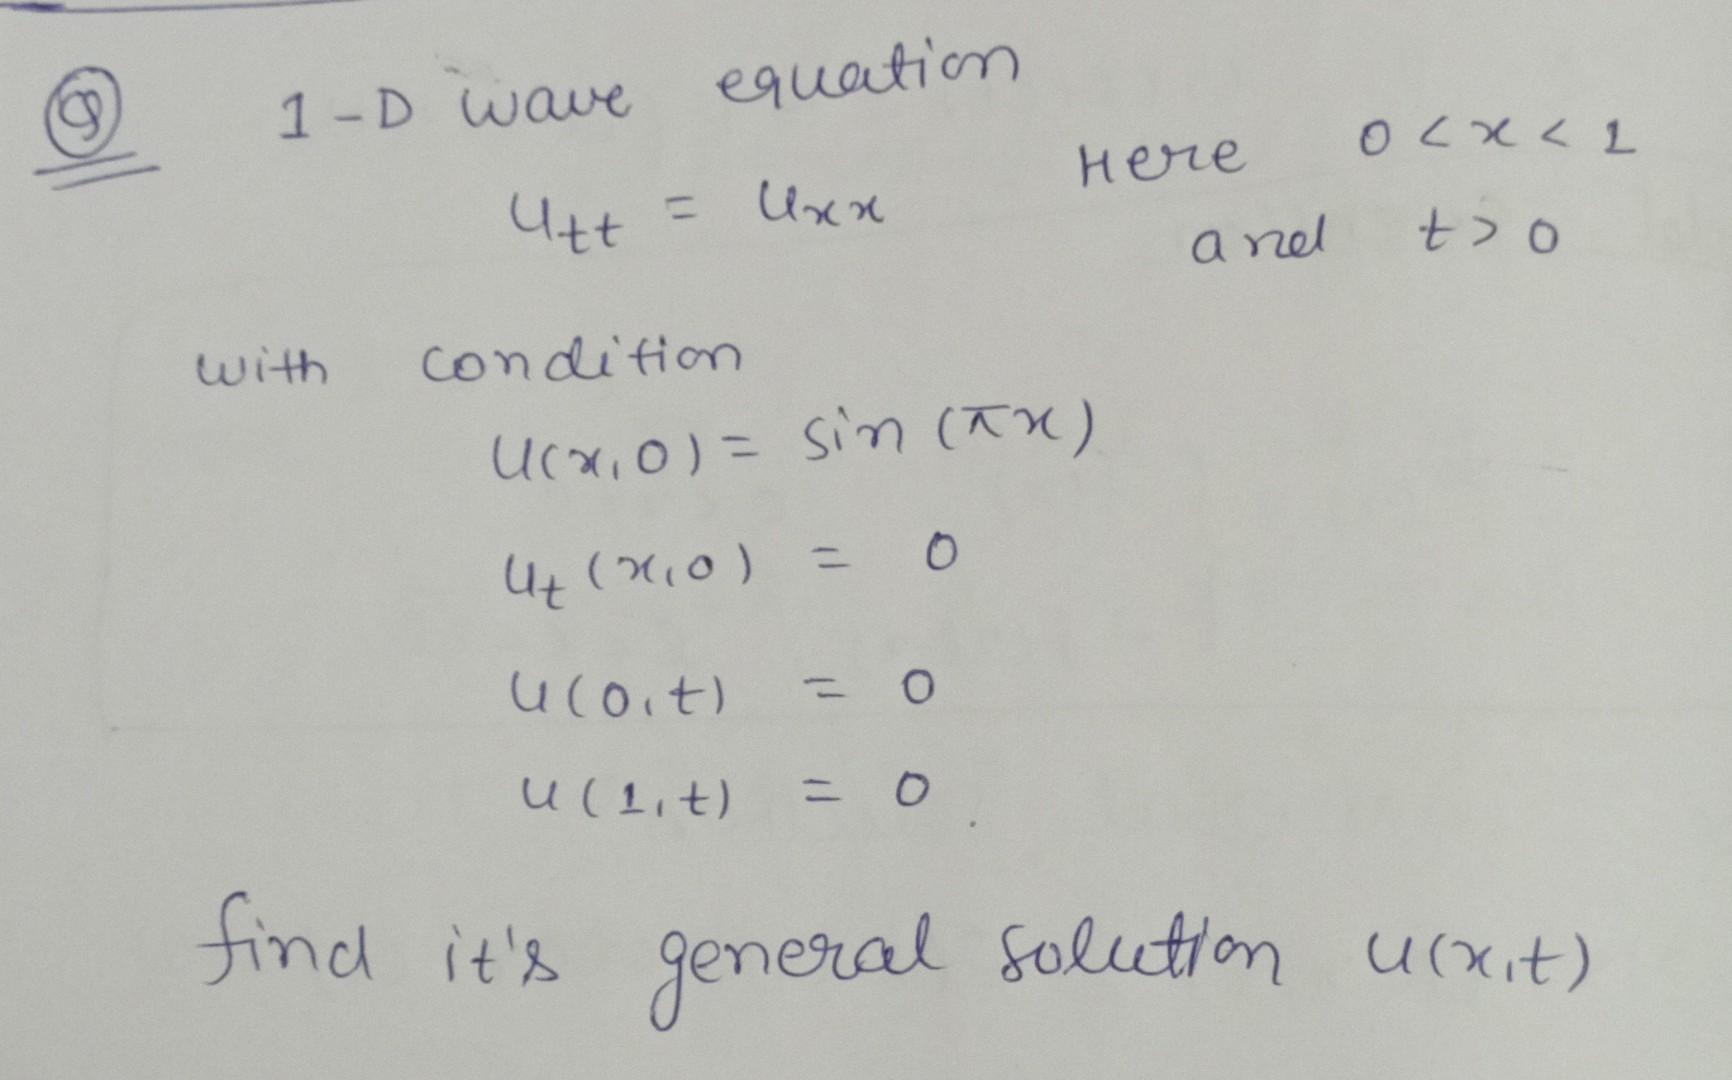 Q 1-D wave equation
u_tt = u_xx Here 0 < x < 1
and t > 0
with condition
u(x,0) = sin (πx)
u_t (x,0) = 0
u(0,t) = 0
u(1,t) = 0.
find it's general solution u(x,t)